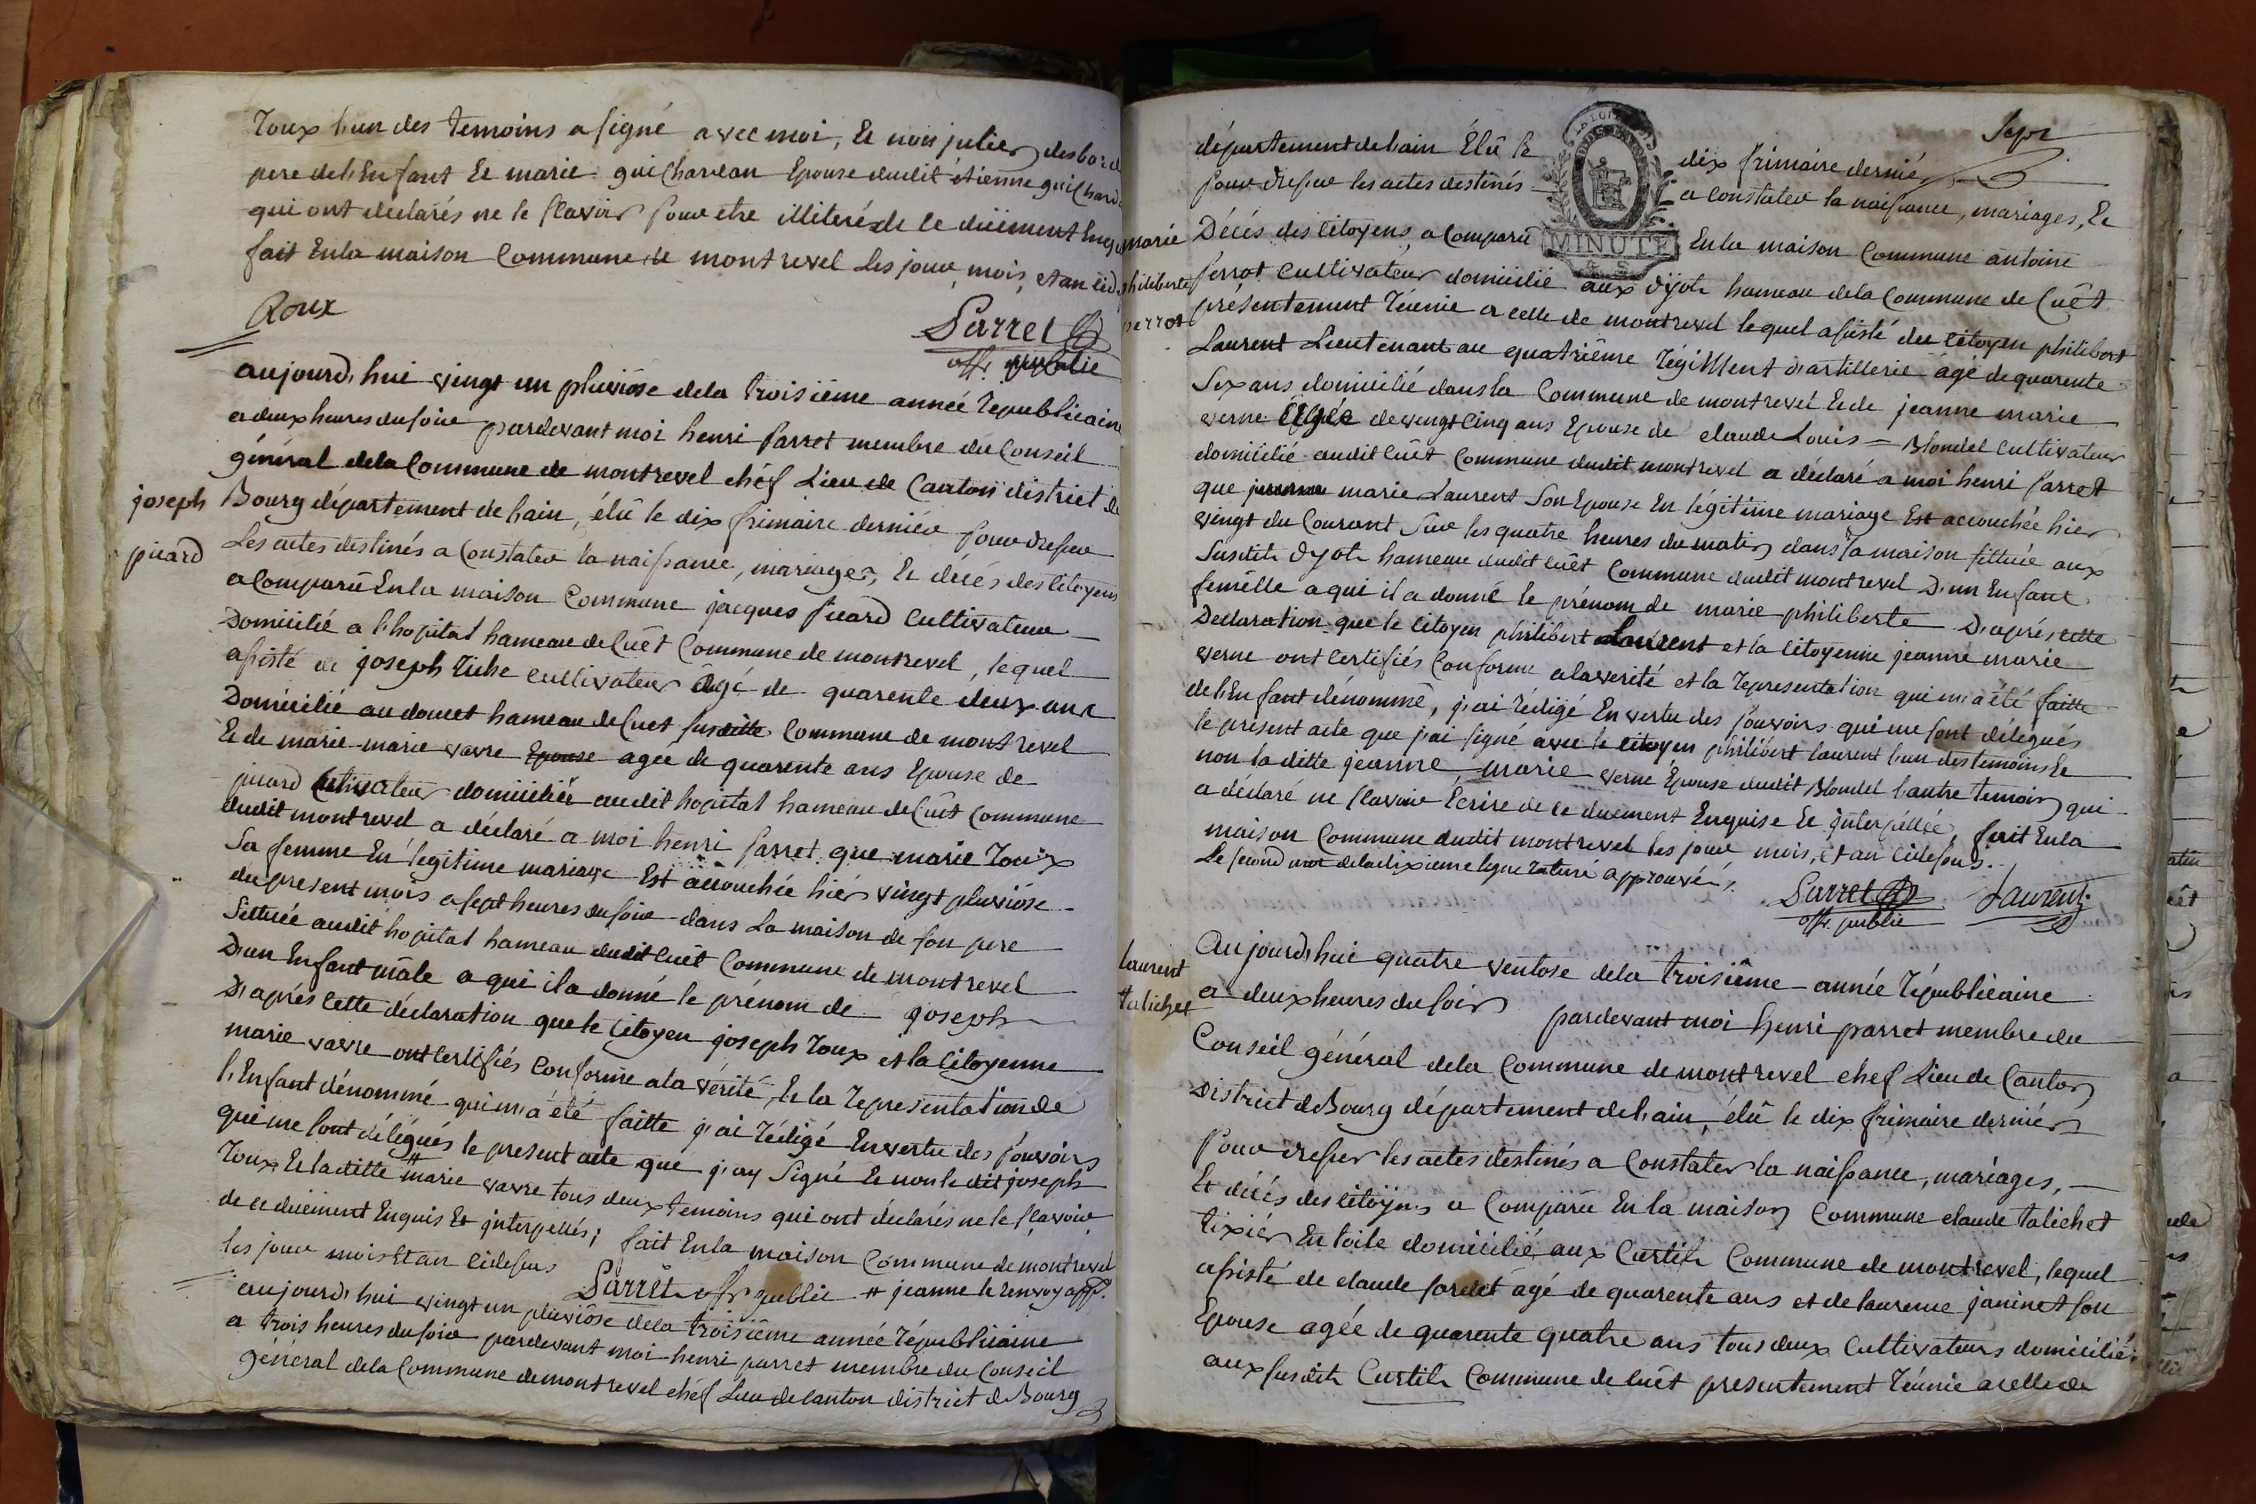 Roux l'un des temoins a signé avec moi, Et non julien desbord
pere de l'Enfant Et marie guichardan Epouse dudit étienne guichard
qui ont déclarés ne le sçavoir pour etre illiteré de ce düement Enq
fait En la maison Commune de montrevel les jour, mois, et an cid
Roux
Parret
off. public
aujourd'hui vingt un pluviôse de la troisiême année republicaine
a deux heures du soir pardevant moi henri parret membre du Conseil
général de la Commune de montrevel chéf Lieu de Canton district de
joseph
picard
Bourg département de l'ain, élû le dix frimaire derniér pour dresser
Les actes destinés a Constater la naissance, mariages, Et décés des Citoyens
a Comparû En la maison Commune jacques picard Cultivateur
Domicilié a l'hopital hameau de Cuêt Commune de montrevel, lequel
assisté de joseph Cultivateur âgé de quarente deux ans
Domicilié au doucet hameau de Cuet susditte Commune de montrevel
Et de marie marie vavre Epouse agée de quarente ans Epouse de
picard Cultivateur domiciliée audit hopital hameau de Cuêt Commune
dudit montrevel a déclaré a moi henri parret que marie Roux
Sa femme En légitime mariage Est accouchée hiér vingt pluviôse
du present mois a sept heures du soir dans La maison de son pere
Sittuée audit hopital hameau dudit Cuêt Commune de montrevel
D'un Enfant mâle a qui il a donné le prénom de joseph
D'aprés Cette déclaration que le Citoyen joseph Roux et la Citoyenne
marie vavre ont Certifiés Conforme a la vérité, Et la representation de
l'Enfant dénommé qui m'a été faitte j'ai rédigé En vertu des pouvoirs
qui me sont délégués le present acte que j'ay Signé Et non le dit joseph
Roux Et la ditte # marie vavre tous deux temoins qui ont déclarés ne le sçavoir
de ce düement Enquis Et interpellés; fait En la maison Commune de montrevel
les jour mois Et an cidessus Parrêt off. public # jeanne le renvoy app.
aujourd'hui vingt un pluviôse de la troisiême année républicaine
a trois heures du soir pardevant moi henri parret membre du Conseil
géneral de la Commune de montrevel chéf Lieu de canton district de Bourg
Sept
département de l'ain Élû le dix frimaire derniér
pour dresser les actes destinés a constater la naissance, mariages, Et
MINUTE
marie
philiberte
perrot
Décés des Citoyens, a Comparû En la maison Commune antoine
perrot Cultivateur domicilié aux dyots hameau de la Commune de Cuêt
présentement réunie a celle de montrevel lequel assisté du citoyen philibert
Laurent Lieutenant au quatriême régiment d'artillerie âgé de quarente
Six ans domicilié dans la Commune de montrevel Et de jeanne marie
verne âgée de vingt Cinq ans Epouse de claude Louis = Blondel cultivateur
domicilié audit Cuêt Commune dudit montrevel a déclaré a moi henri parret
que marie Laurent Son Epouse En légitime mariage Est accouchée hier
vingt du Courant Sur les quatre heures du matin dans la maison sittuée aux
Susdits dyots hameau dudit Cuêt Commune dudit montrevel D'un Enfant
femelle a qui il a donné le prénom de marie philiberte D'aprés cette
Declaration que le Citoyen philibert Laurent et la Citoyenne jeanne marie
verne ont Certifiés Conforme a la verité et la representation qui m'a été faitte
de l'Enfant dénommé, j'ai rédigé En vertu des pouvoirs qui me sont délégués
le présent acte que j'ai signé avec le citoyen philibert laurent l'un des temoins Et
non la ditte jeanne marie verne Epouse dudit Blondel l'autre temoin qui
a déclaré ne sçavoir Ecrire de ce duement Enquise Et interpellée, fait En la
maison Commune dudit montrevel les jour mois, Et an Cidessus.
Le second mot de la dixieme ligne raturé approuvé.
Parret Laurent
off. public
laurent
talichet
Aujourd'hui quatre ventose de la troisiême année républicaine
a deux heures du soir pardevant moi henri parret membre du
Conseil général de la Commune de montrevel chef Lieu de Canton
District de Bourg département de l'ain, élû le dix frimaire derniér
Pour dresser les actes destinés a Constater la naissance, mariages,
Et décés des citoyens a Comparû En la maison Commune claude talichet
tixiér En toile domicilié aux Curtils Commune de montrevel, lequel
assisté de claude âgé de quarente ans et de laurence janinet son
Epouse agée de quarente quatre ans tous deux Cultivateurs domiciliés
aux susdits Curtils Commune de Cuêt presentement réunie a celle de